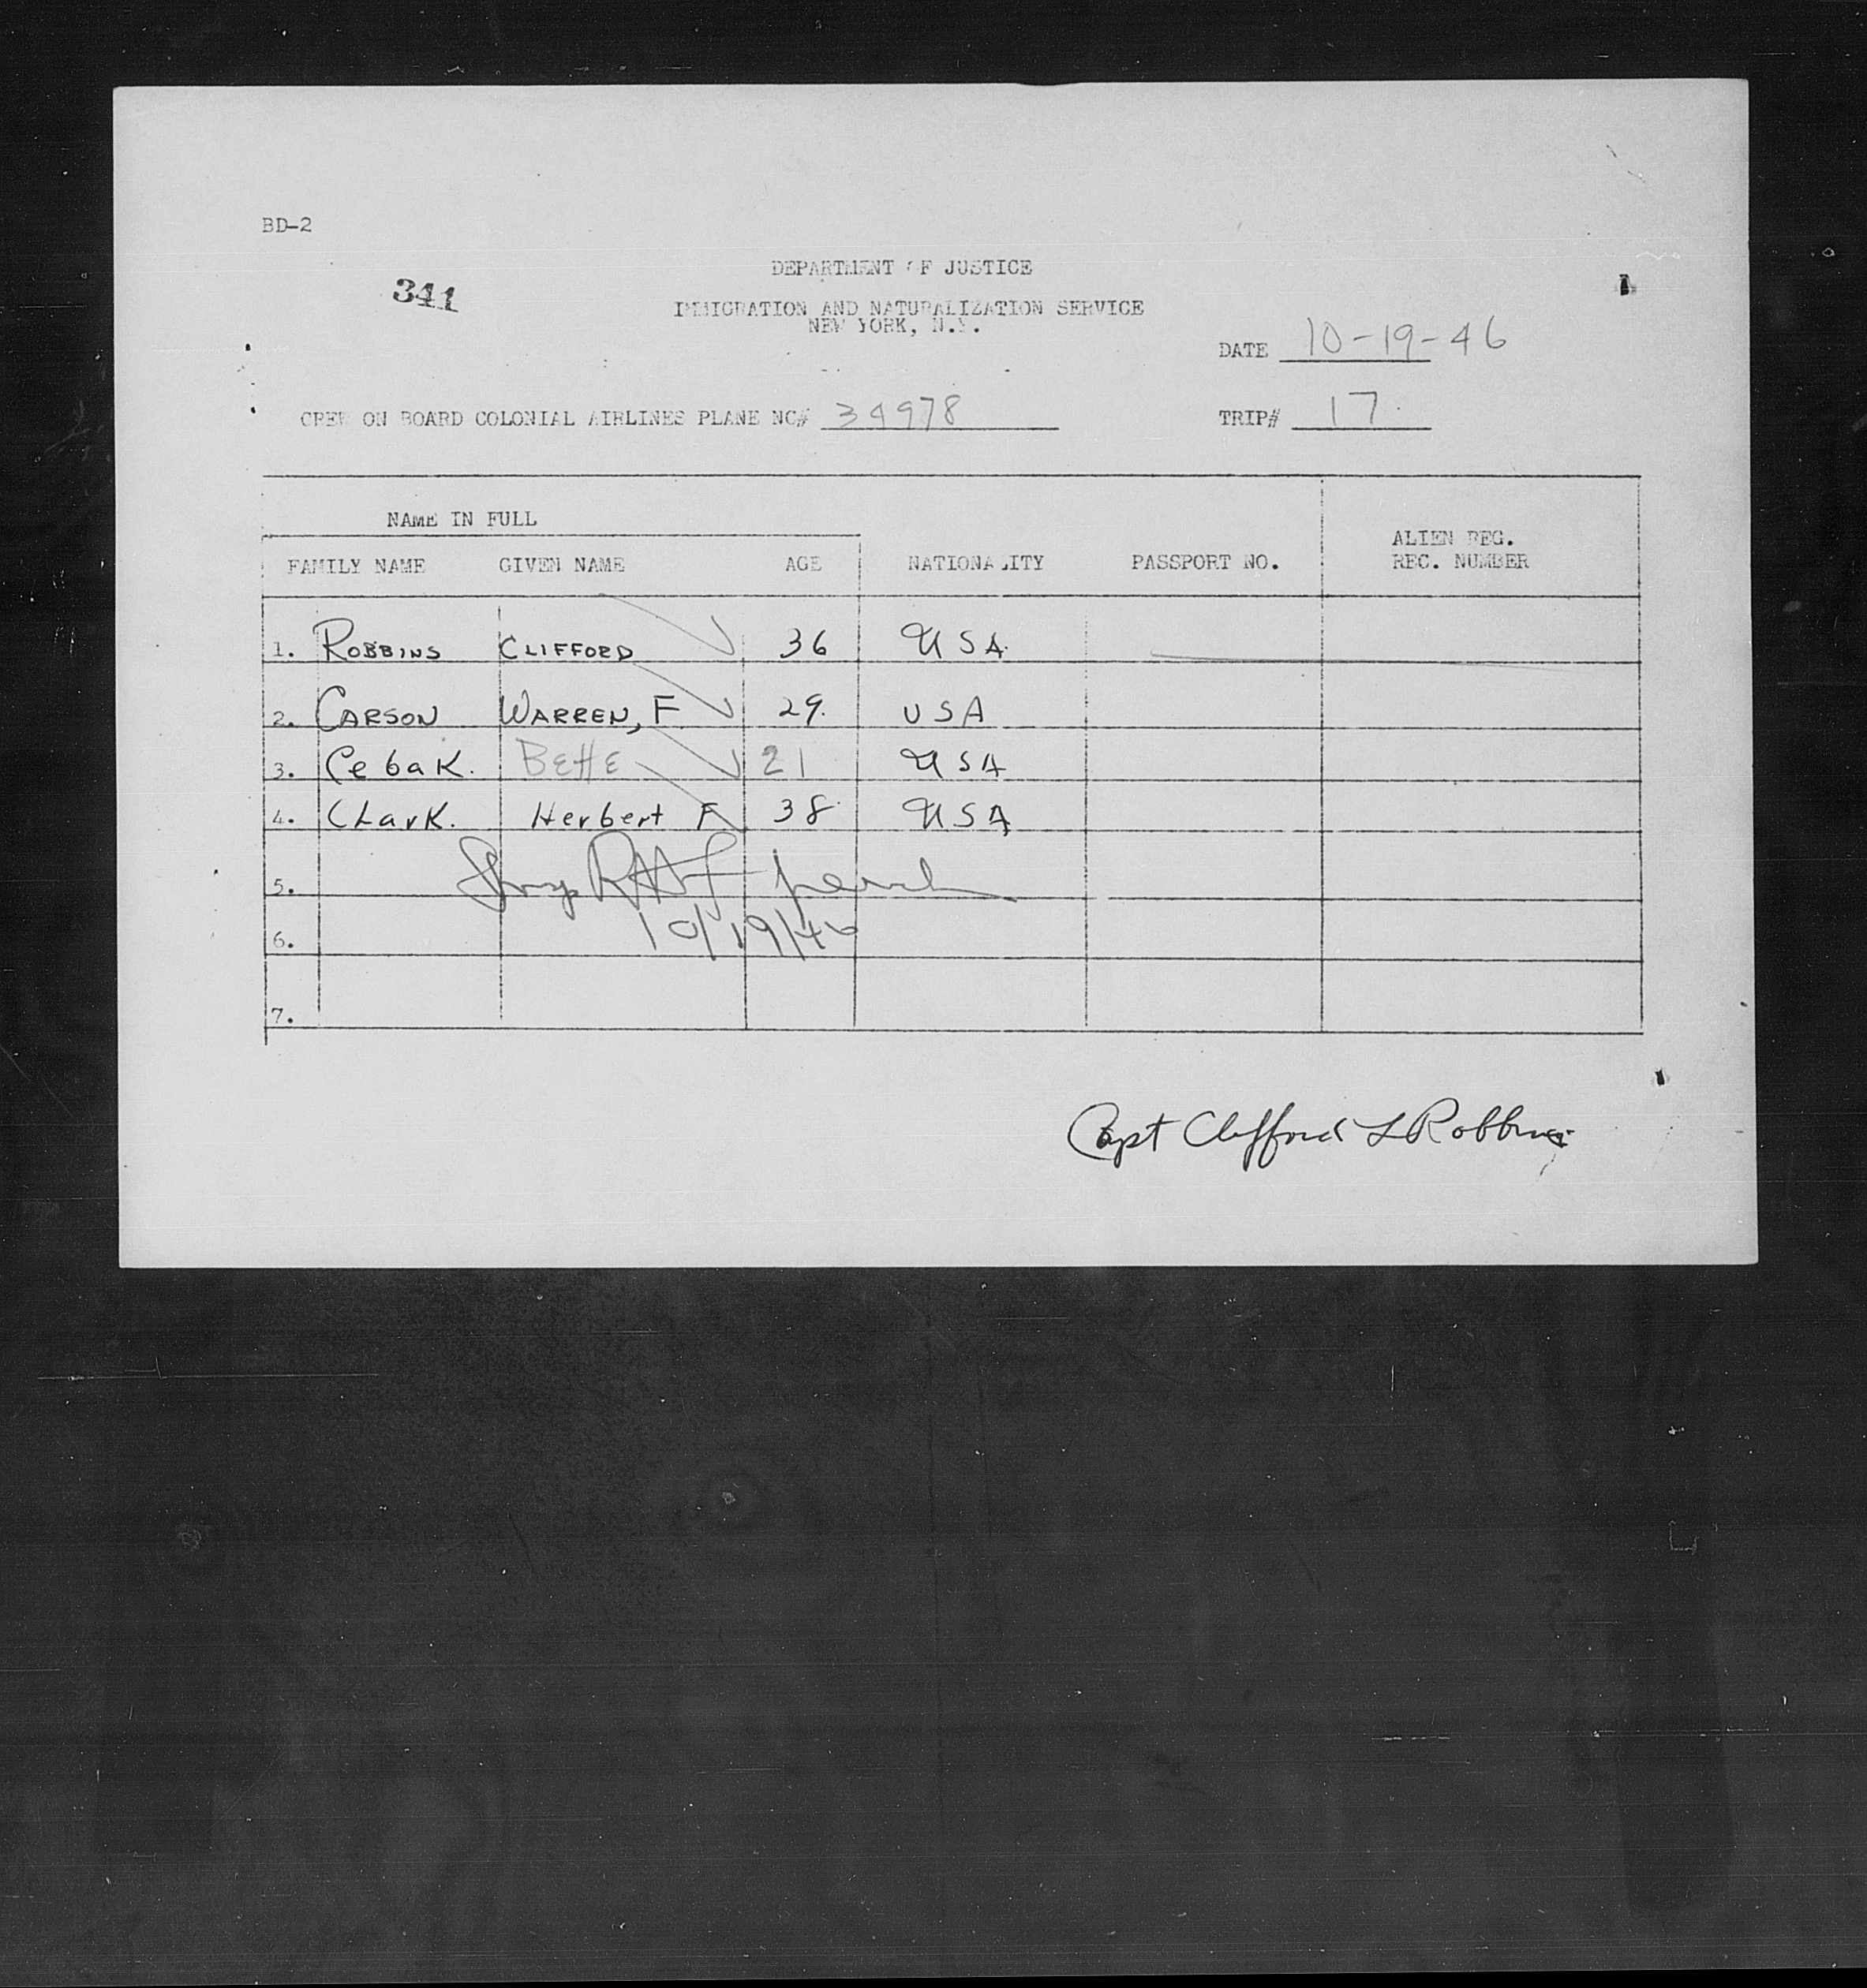 BD-2
DEPARTMENT OF JUSTICE
341
IMMIGRATION AND NATURALIZATION SERVICE
NEW YORK, N.Y.
DATE 10-19-46
CREW ON BOARD COLONIAL AIRLINES PLANE NC# 34978 TRIP# 17
NAME IN FULL
ALIEN REG.
FAMILY NAME GIVEN NAME AGE NATIONALITY PASSPORT NO. REC. NUMBER
1. ROBBINS CLIFFORD 36 USA
2. CARSON WARREN, F 29 USA
3. Cebak. BEttE 21 USA
4. CLark. Herbert F 38 USA
5.
10/19/46
6.
7.
Capt Clifford L Robbins